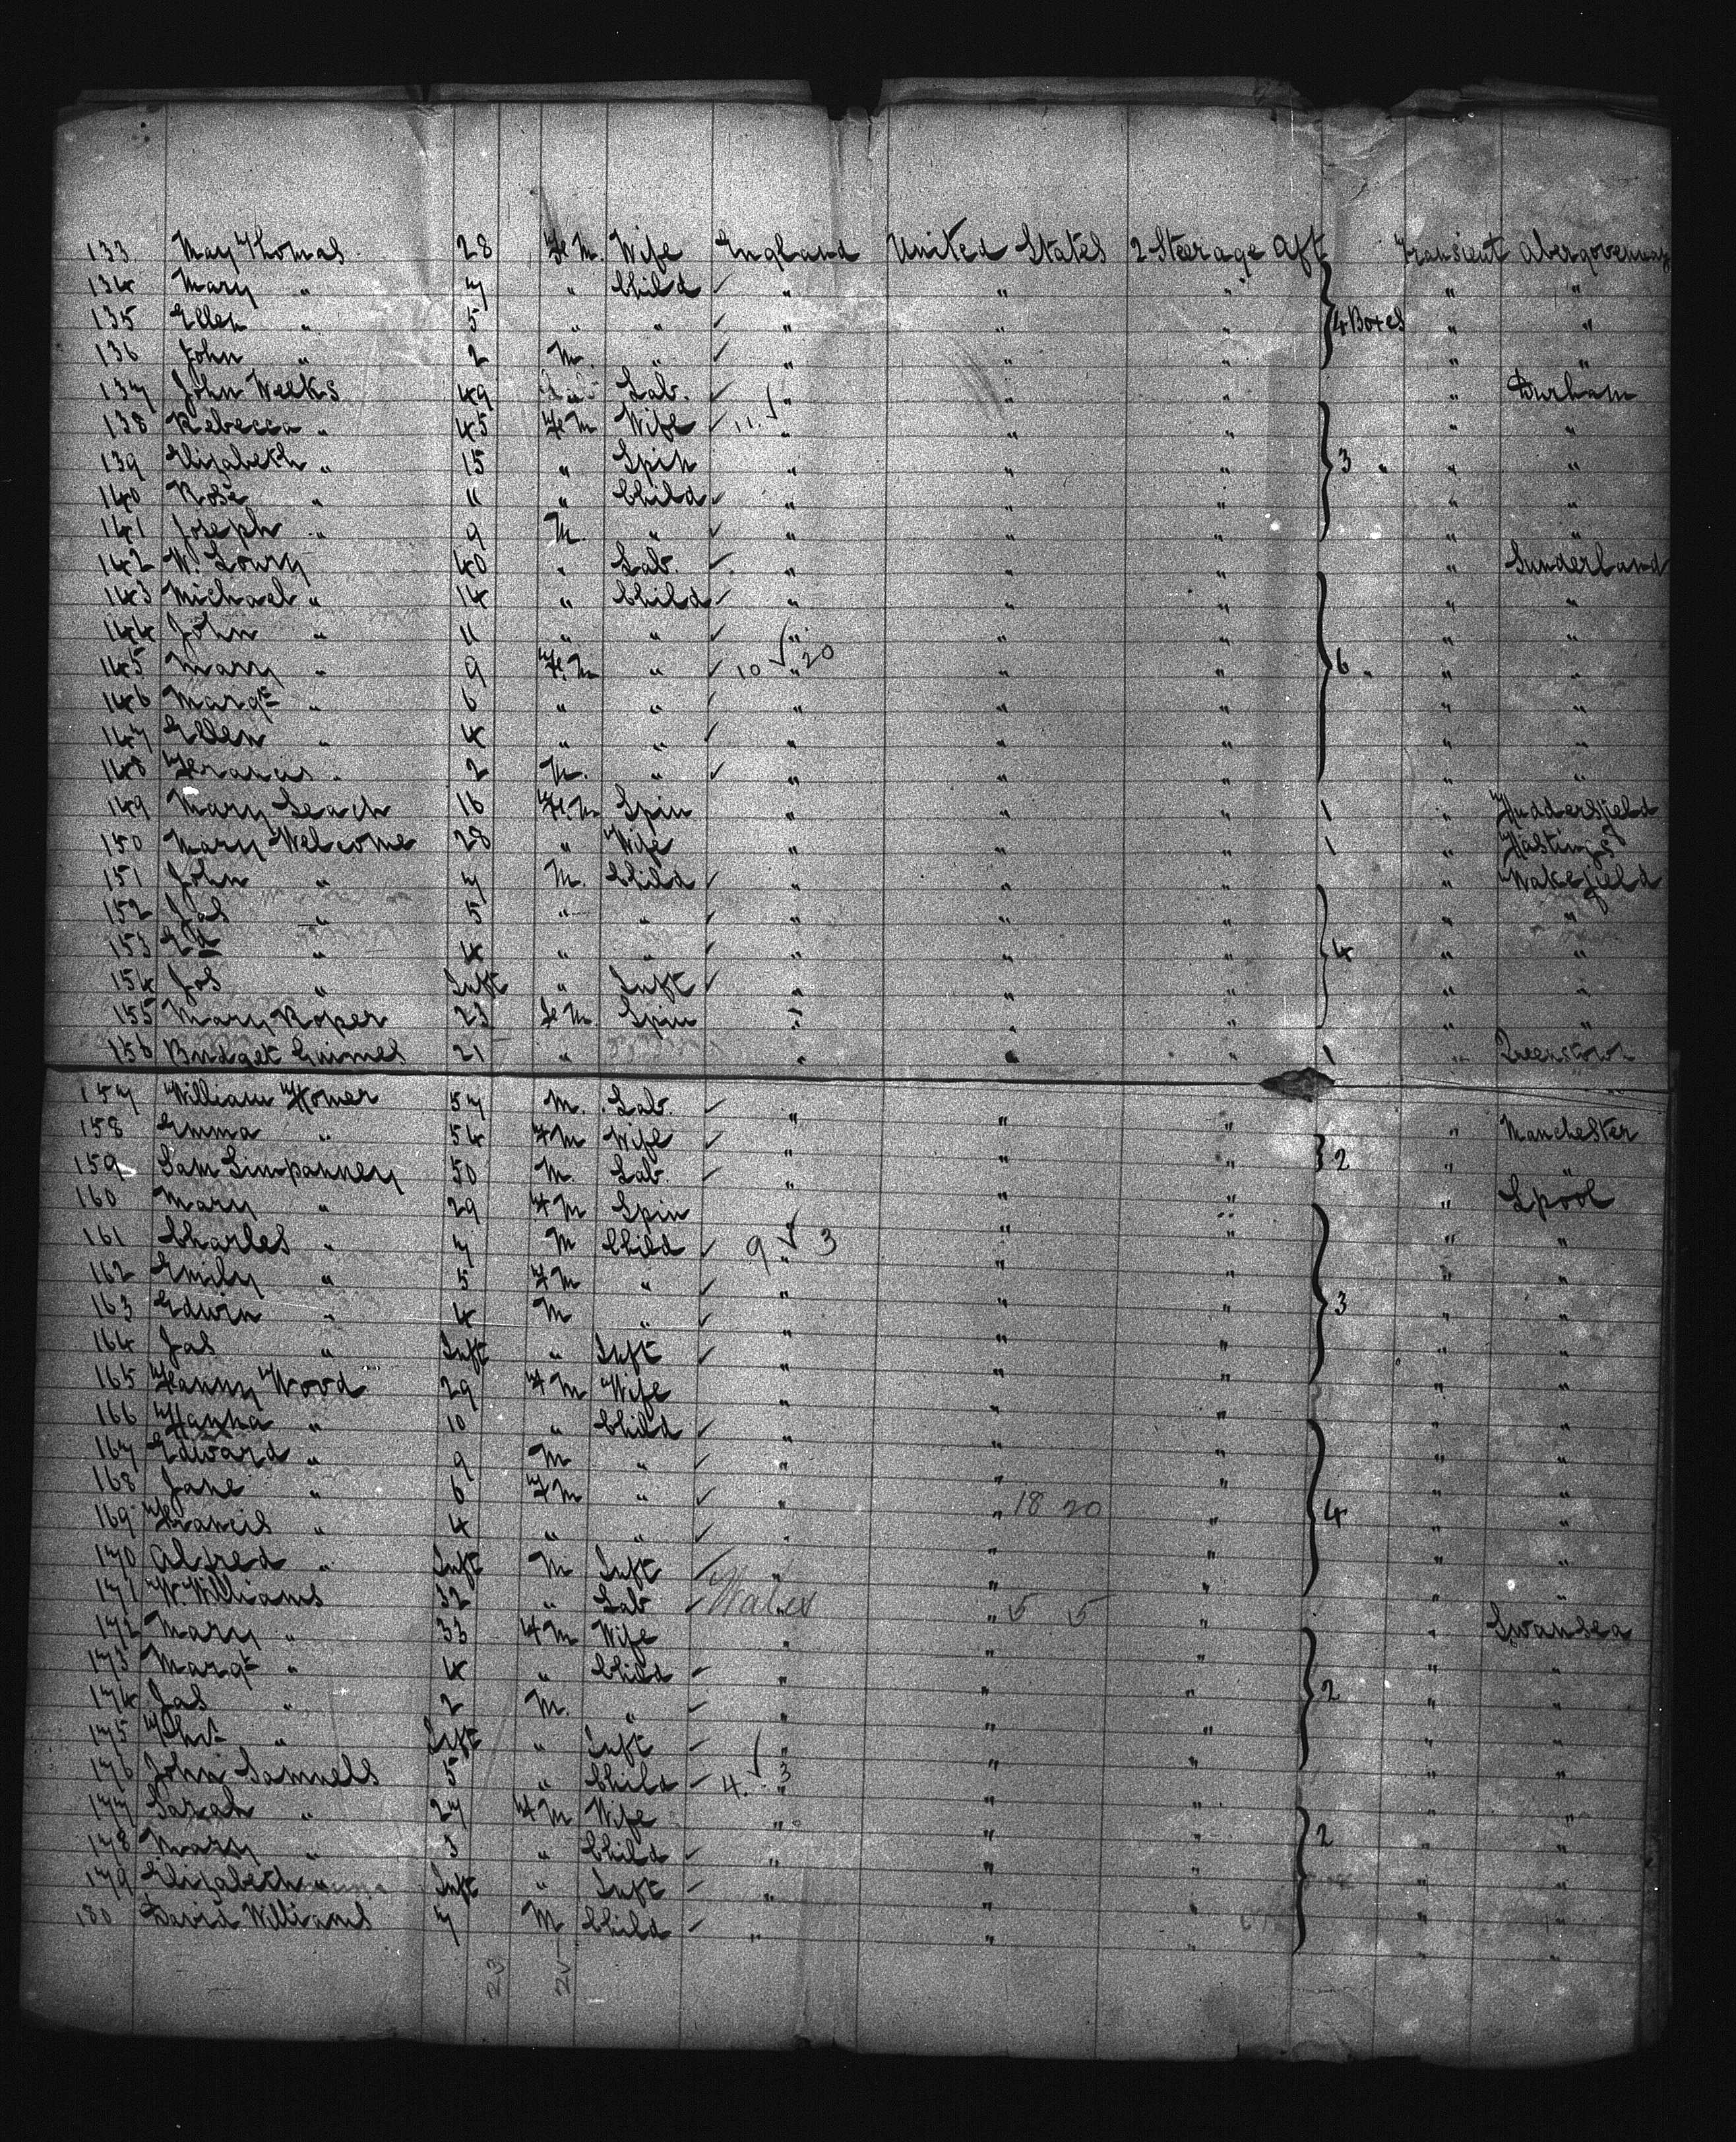 133 May Thomas 28 Fe M. Wife England United States 2 Steerage Aft Transient Abergavenny
134 Mary " 7 " Child ✓ " " " " "
135 Ellen " 5 " " ✓ " " " 4 Boxes " "
136 John " 2 M. " ✓ " " " " "
137 John Weeks 49 Lab. ✓ " " " " Durham
138 Rebecca " 45 Fe M Wife ✓ 11 ✓ " " " " "
139 Elizabeth " 15 " Spin " " " 3 " " "
140 Rose " 11 " Child ✓ " " " " "
141 Joseph " 9 M. " ✓ " " " " "
142 W. Lowry 40 " Lab. ✓ " " " " Sunderland
143 Michael " 14 " Child ✓ " " " " "
144 John " 11 " " ✓ " " " " "
145 Mary " 9 Fe. M " ✓ 10 ✓ 20 " " " 6 " " "
146 Margt " 6 " " " " " " "
147 Ellen " 4 " " ✓ " " " " "
148 Francis " 2 M. " ✓ " " " " "
149 Mary Leach 16 Fe. M Spin " " " 1 " Huddersfield
150 Mary Welcome 28 " Wife " " " 1 " Hastings
151 John " 7 M. Child ✓ " " " " Wakefield
152 Jas " 5 " " ✓ " " " " "
153 Ed " 4 " " ✓ " " " 4 " "
154 Jos " Inft " Inft ✓ " " " " "
155 Mary Roper 23 Fe M. Spin " " " " "
156 Bridget Grimes 21 " " " " 1 " Queenstown
157 William Homer 57 M. Lab. ✓ " " "
158 Emma " 54 F M Wife ✓ " " " " Manchester
159 Sam Simpanney 50 M. Lab. ✓ " " " 2 " "
160 Mary " 29 F M Spin " " " " Lpool
161 Charles " 7 M Child ✓ 9 ✓ 3 " " " " "
162 Emily " 5 F M " ✓ " " " " "
163 Edwin " 4 M " ✓ " " " 3 " "
164 Jas " Inft " Inft ✓ " " " " "
165 Fanny Wood 29 F M Wife " " " " "
166 Hanna " 10 " Child ✓ " " " " "
167 Edward " 9 M " ✓ " " " " "
168 Jane " 6 F M " ✓ " " 18 20 " " "
169 Francis " 4 " " ✓ " " " 4 " "
170 Alfred " Inft M Inft ✓ " " " " "
171 W. Williams 32 " Lab ✓ Wales " 5 5 " " "
172 Mary " 33 F M Wife " " " " Swansea
173 Margt " 4 " Child ✓ " " " " "
174 Jas " 2 M. " ✓ " " " 2 " "
175 " Inft " Inft ✓ " " " " "
176 John Samuels 5 " Child ✓ 4 ✓ 3 " " " " "
177 Sarah " 27 F M Wife " " " " "
178 Mary " 3 " Child ✓ " " " 2 " "
179 Elizabeth " Inft " Inft ✓ " " " " "
180 David Williams 7 M Child ✓ " " " " "
23 2